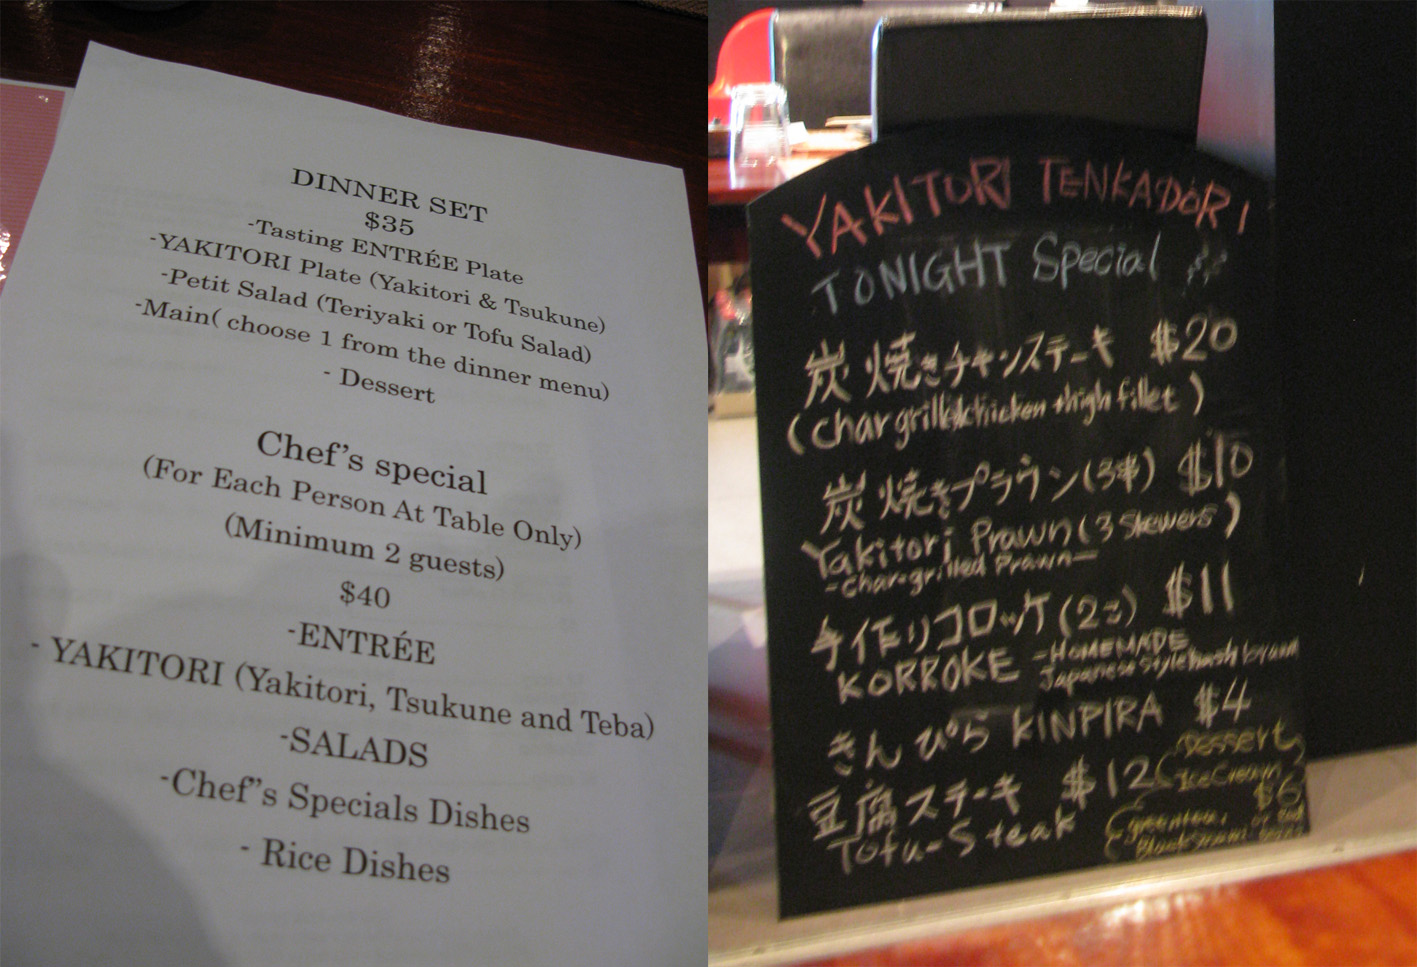 DINNER SET
$35
-Tasting ENTRÉE Plate
-YAKITORI Plate (Yakitori & Tsukune)
-Petit Salad (Teriyaki or Tofu Salad)
-Main( choose 1 from the dinner menu)
- Dessert
Chef's special
(For Each Person At Table Only)
(Minimum 2 guests)
$40
-ENTRÉE
- YAKITORI (Yakitori, Tsukune and Teba)
-SALADS
-Chef"s Specials Dishes
- Rice Dishes
YAKITORI TENKADORI
TONIGHT Special
炭焼きチキンステーキ $20
(Char grill chicken thigh fillet)
炭焼きプラウン(3串) $10
Yakitori Prawn (3 Skewers)
-char-grilled Prawn-
手作りコロッケ(2コ) $11
KORROKE -HOMEMADE
Japanese style hash brown
きんぴら KINPIRA $4
豆腐ステーキ $12
Tofu-Steak
Dessert
Ice Cream
$6
green tea, or red
Black